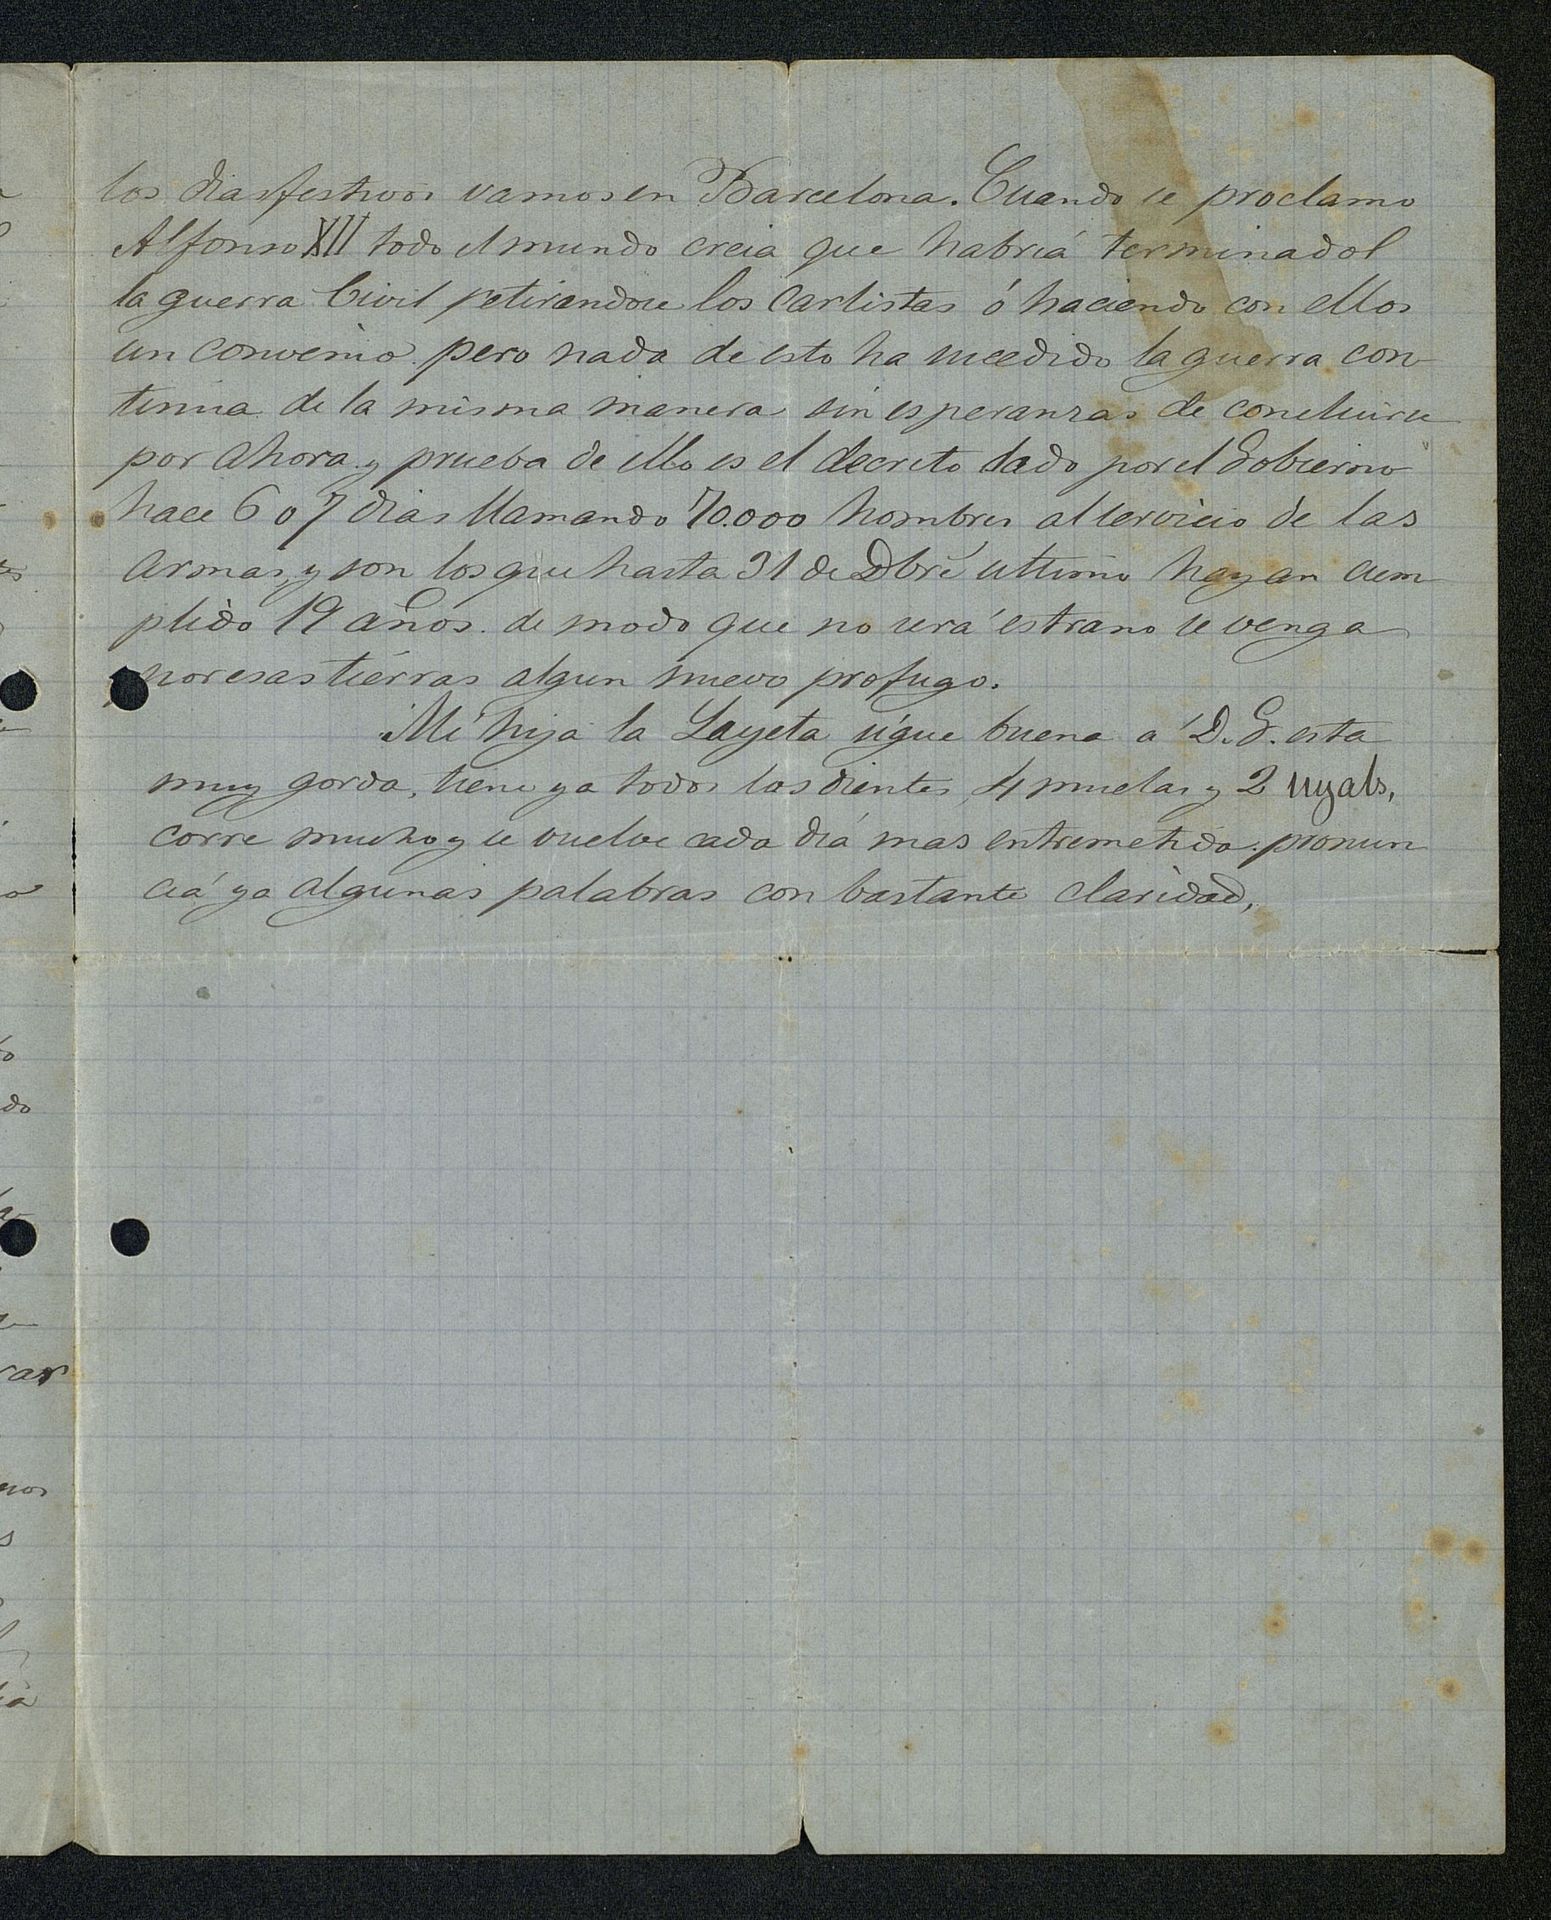 los dias festivos vamos en Barcelona. Cuando se proclamo
Alfonso XII todo el mundo creia que habria terminado
la guerra Civil retirandose los Carlistas ó haciendo con ellos
un convenio pero nada de esto ha sucedido la guerra con-
tinua de la misma manera sin esperanzas de concluirse
por ahora y prueba de ello es el decreto dado por el Gobierno
hace 6 o 7 dias llamando 70.000 hombres al servicio de las
armas, y son los que hasta 31 de Dbre ultimo hayan cum
plido 19 años. de modo que no será estrano se venga
por esas tierras algun nuevo profugo.
Mi hija la Layeta sigue buena á D. G. esta
muy gorda, tiene ya todos los dientes, 4 muelas y 2 uyals,
corre mucho y se vuelve cada dia mas entremetida. pronun
cia ya algunas palabras con bastante claridad,